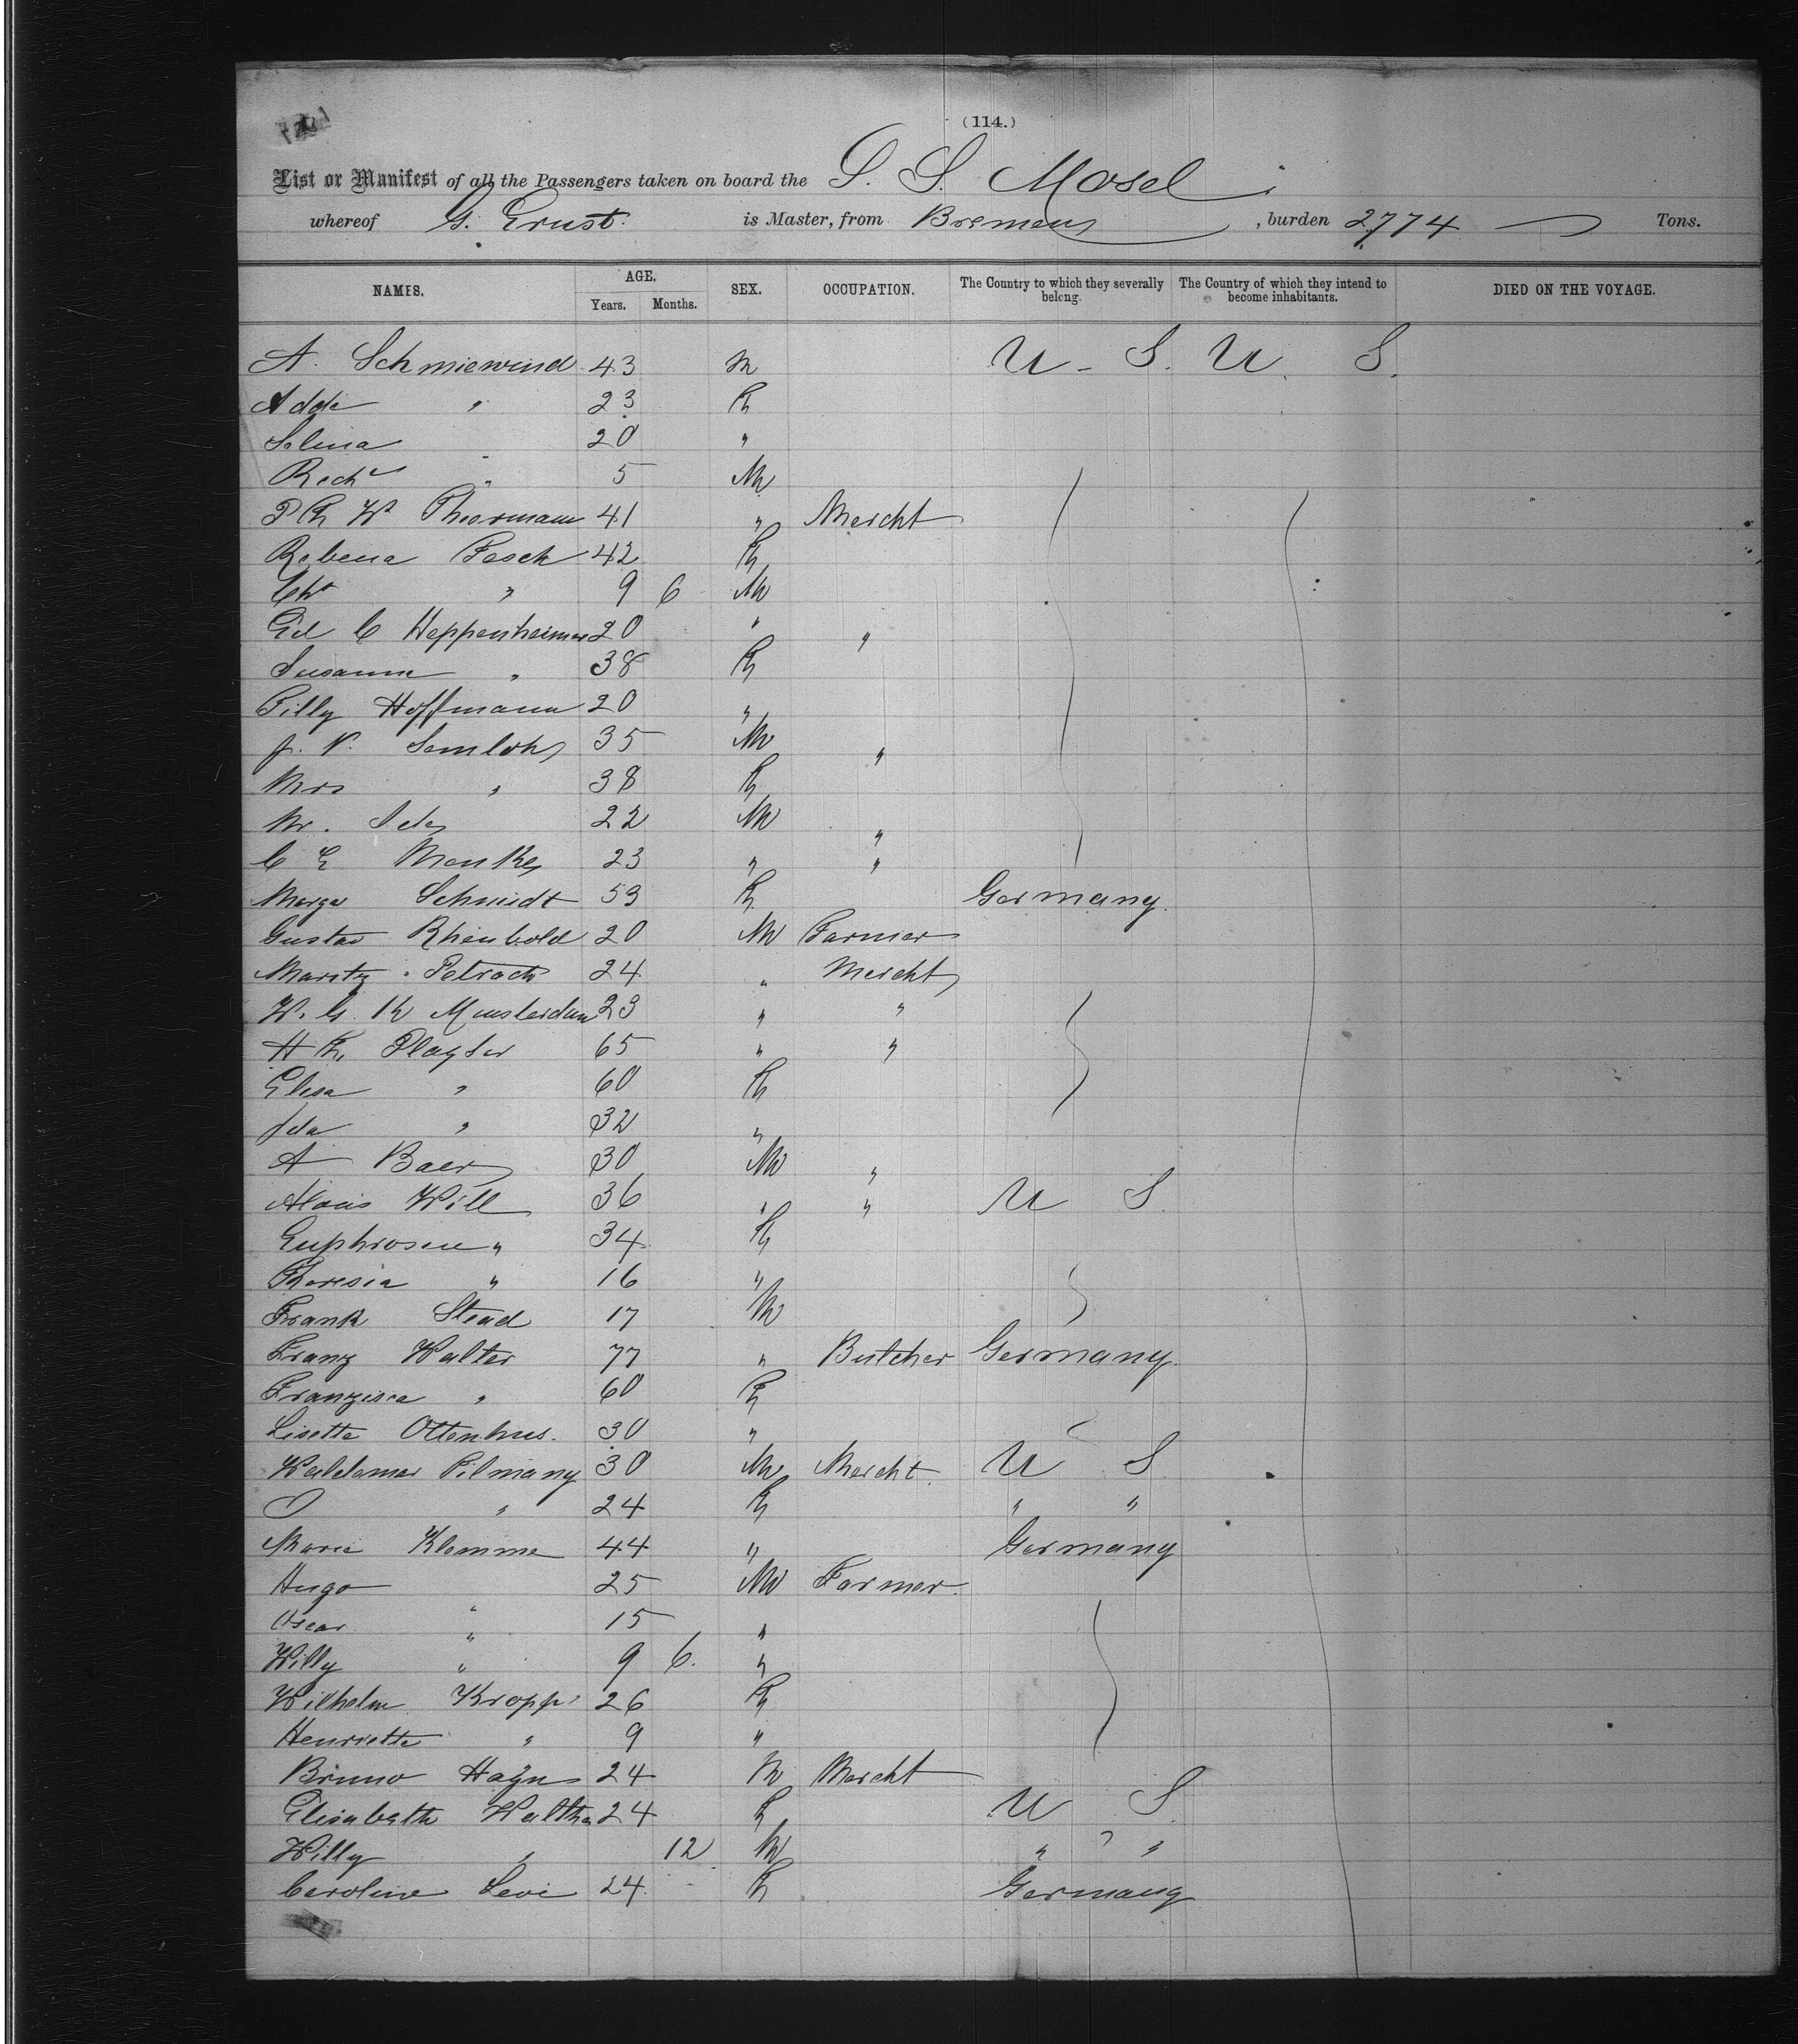 (114.)
List or Manifest of all the Passengers taken on board the S. S. Mosel
whereof G. Ernst is Master, from Bremen, burden 2774 Tons.
NAMES. AGE. Years. Months. SEX. OCCUPATION. The Country to which they severally belong. The Country of which they intend to become inhabitants. DIED ON THE VOYAGE.
A. Schniewind 43 M U. S. U. S.
Adde " 23 F
Selina 20 "
Rich " 5 M
41 " Mercht
42 F
" 9 6 M
Ed C Heppenheimer 20 " "
Susanna " 38 F
Hoffmann 20 "
35 M "
Mrs " 38 F
22 M "
C E Menke 23 " "
Marga Schmidt 53 F Germany
Gustav Rheinbold 20 M Farmer
Moritz Petrach 24 " Mercht
23 " "
65 " "
Elisa " 60 F
Ida " 32 "
A Baer 30 M "
Alois Will 36 " " U S.
Euphrosin " 34 F
Theresia " 16 "
Frank Stead 17 M
Franz Walter 77 " Butcher Germany
Franzisca " 60 F
Lisette Ottenhus. 30 "
Waldemar 30 M Mercht. U S
" 24 F " "
Maria Klemme 44 " Germany
Hugo " 25 M Farmer
Oscar " 15 "
Willy " 9 6. "
Wilhelm Kropp 26 F
Henriette " 9 "
Bruno Hayn 24 M Mercht
Elisabeth 24 F U S.
Willy " 12 M " " "
Caroline Levi 24 F Germany